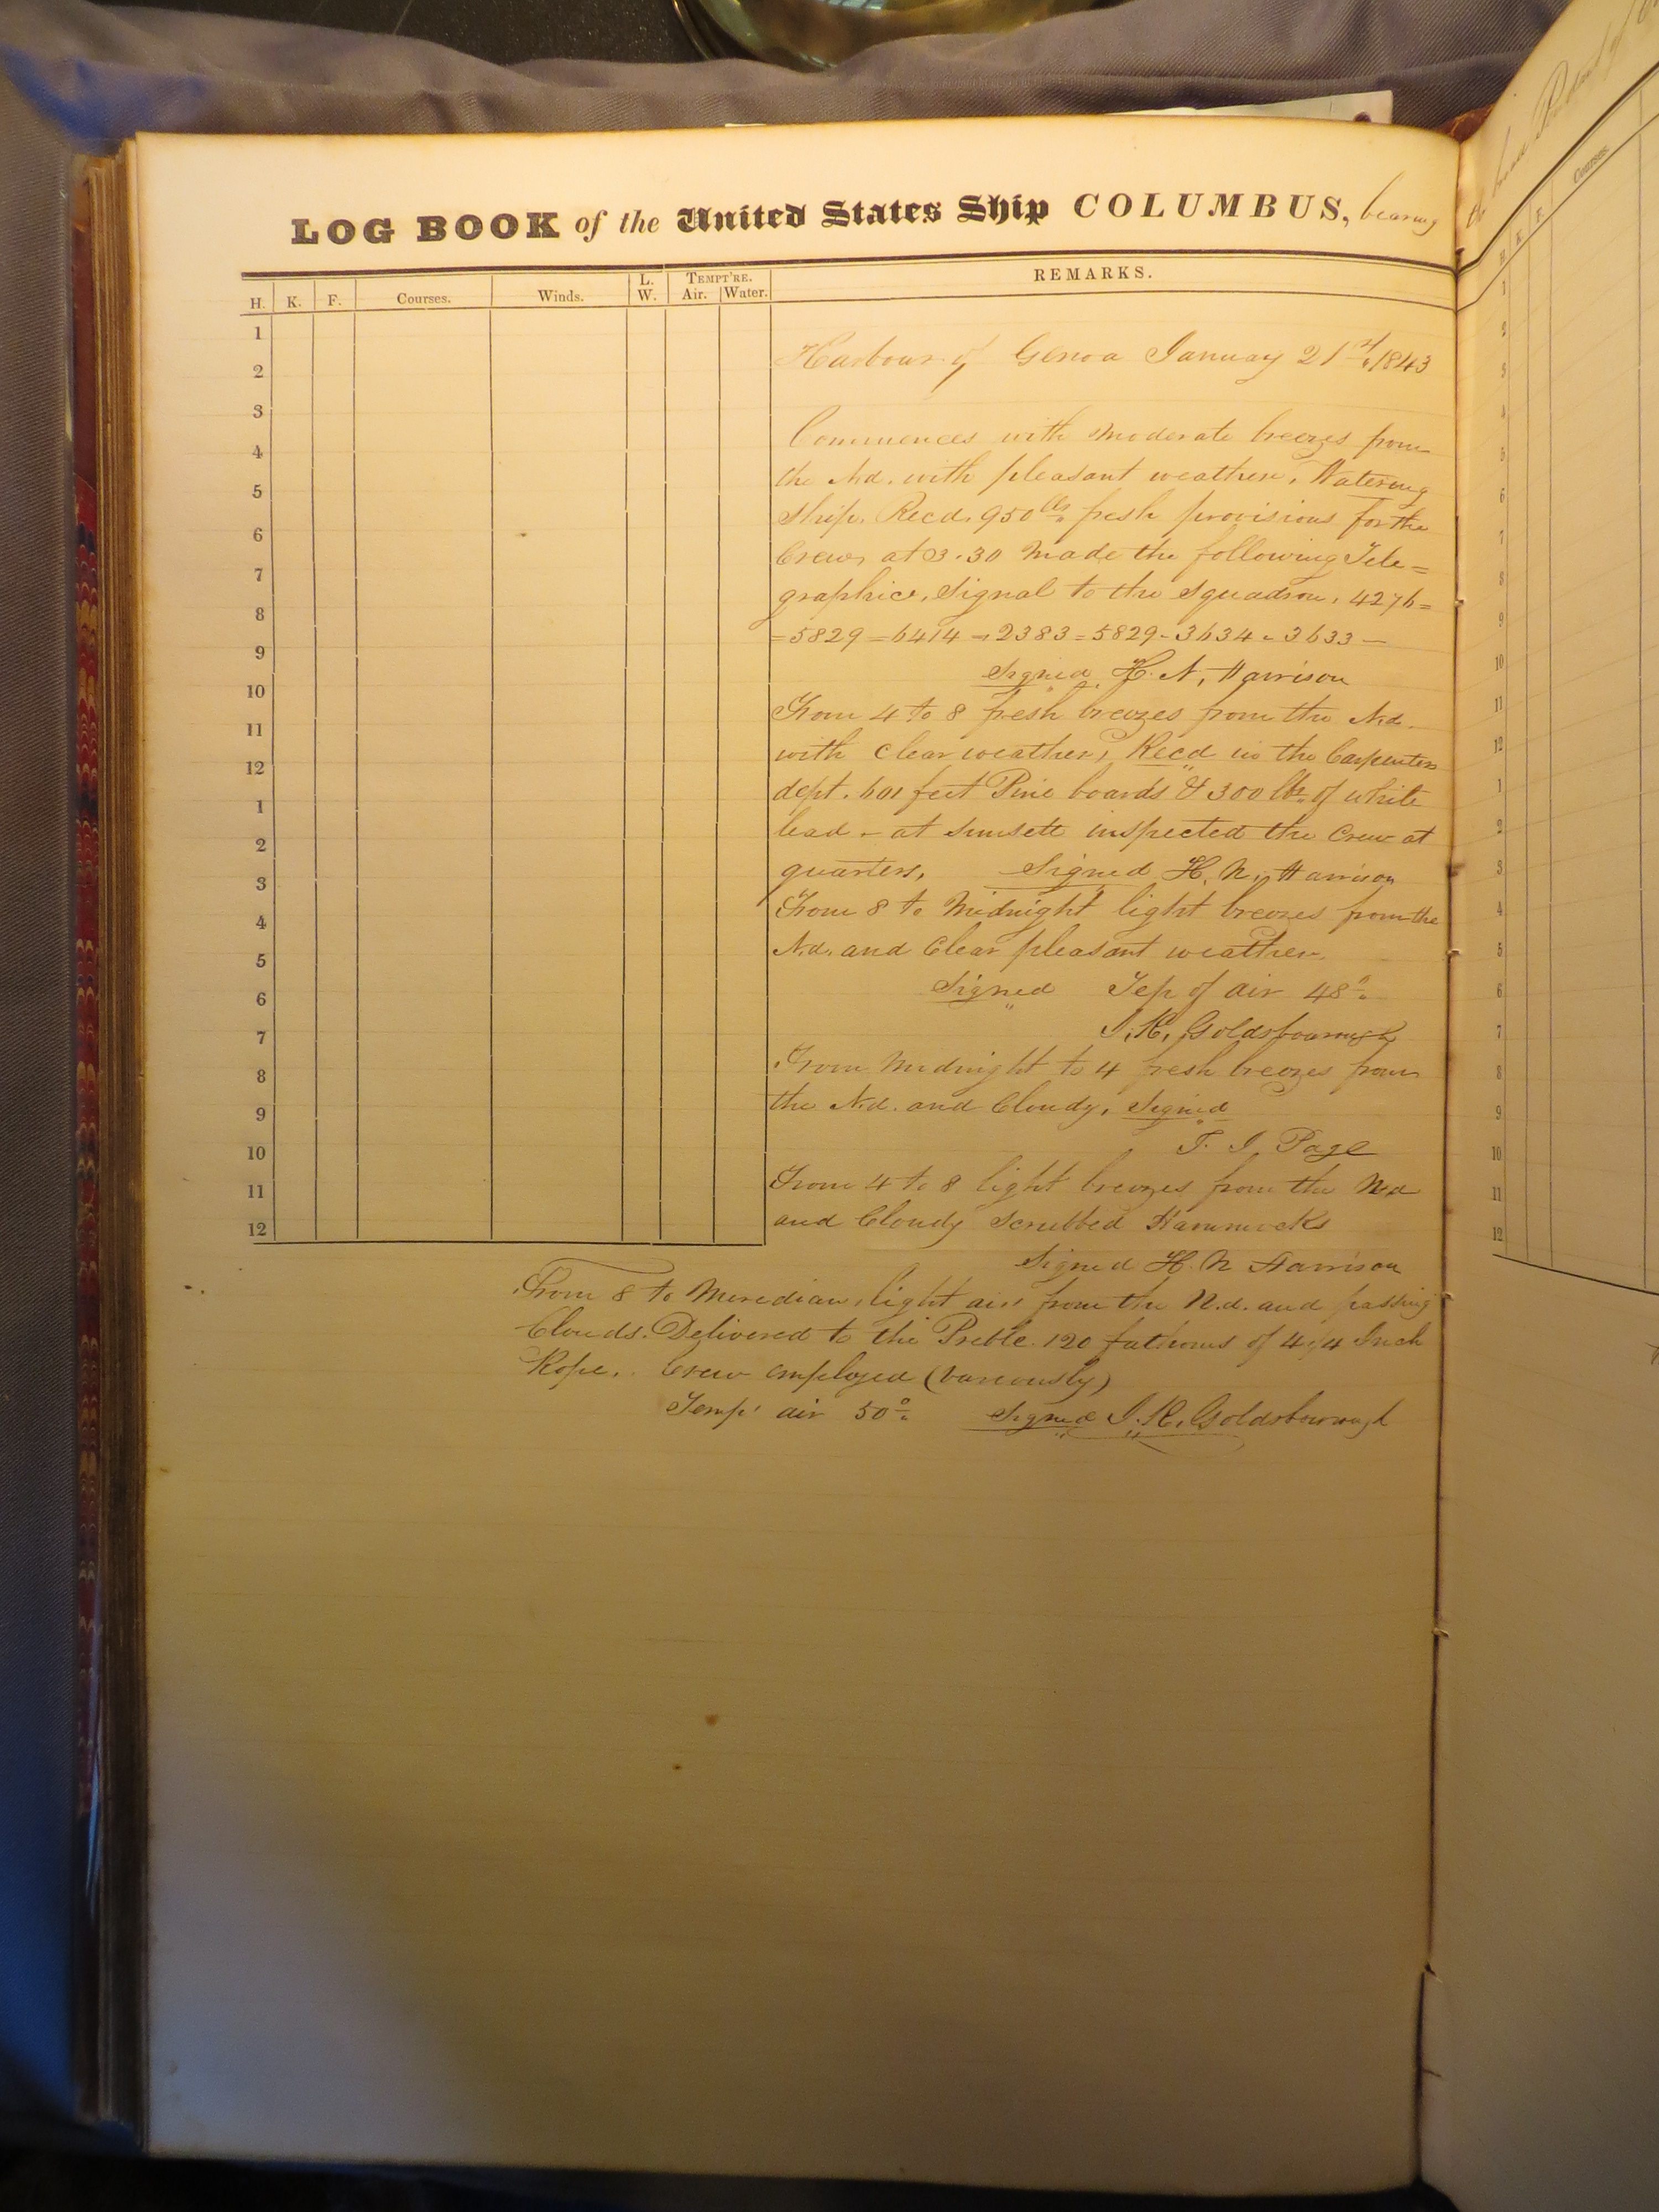 LOG BOOK of the United States Ship COLUMBUS, bearing
H. K. F. Courses. Winds. L. W. TEMPT'RE. Air. Water. REMARKS.
1
2
3
4
5
6
7
8
9
10
11
12
1
2
3
4
5
6
7
8
9
10
11
12
Harbour of Genoa January 21st 1843
Commences with moderate breezes from
the Nd. with pleasant weather, Watering
ship. Recd. 950 lbs. fresh provisions for the
Crew, at 3.30 made the following Tele=
graphic, Signal to the squadron, 4276=
=5829=6414=2383=5829-3634-3633—
Signed H. N. Harrison
From 4 to 8 fresh breezes from the Nd.
with clear weather, Recd in the Carpenters
dept. 601 feet Pine boards & 300 lbs. of white
lead - at sunsett inspected the Crew at
quarters, Signed H. N. Harrison
From 8 to Midnight light breezes from the
Nd. and Clear pleasant weather.
Signed Tep of air 48°
J. R. Goldsborough
From Midnight to 4 fresh breezes from
the Nd. and Cloudy, Signed
T. J. Page
From 4 to 8 light breezes from the Nd
and Cloudy Scrubbed Hammocks
Signed H. N Harrison
From 8 to Meredian, light air from the N.d. and passing
Clouds. Delivered to the Preble 120 fathoms of 4 1/4 Inch
Rope. Crew employed (variously)
Temp' air 50° Signed J. R. Goldsborough
Courses.
H. K. F.
1
2
3
4
5
6
7
8
9
10
11
12
1
2
3
4
5
6
7
8
9
10
11
12